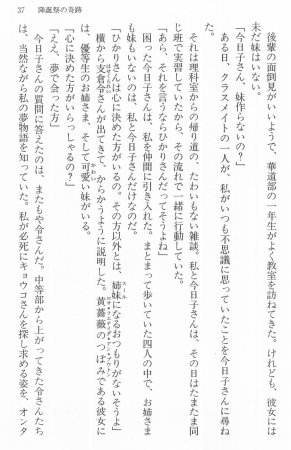 37 降誕祭の奇跡
後輩の面倒見がいいようで、華道部の一年生がよく教室を訪ねてきた。けれども、彼女には
未だ妹はいない。
「今日子さん、妹作らないの?」
ある日、クラスメイトの一人が、私がいつも不思議に思っていたことを今日子さんに尋ね
た。
それは理科室からの帰り道の、たわいもない雑談。私と今日子さんは、その日はたまたま同
じ班で実習していたから、その流れで一緒に行動していた。
「あら、それを言うならひかりさんだってそうよね」
困った今日子さんは、私を仲間に引き入れた。まとまって歩いていた四人の中で、お姉さま
も妹もいないのは、私と今日子さんだけなのだ。
「ひかりさんは心に決めた方がいるの。その方以外とは、姉妹になるおつもりがないそうよ」
横から支倉令さんが出てきて、からかうように説明した。黄薔薇のつぼみである彼女に
は、優等生のお姉さま、そして可愛い妹がいる。
「心に決めた方がいらっしゃるの?」
「ええ、夢で会った方」
今日子さんの質問に答えたのは、またもや令さんだ。中等部から上がってきた令さんたち
は、当然ながら私の夢物語を知っていた。私が必死にキョウコさんを探し求める姿を、オンタ